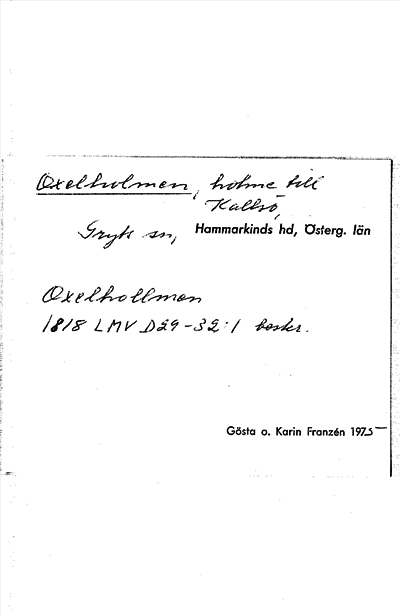 Oxelholmen, holme till
Kallsö,
Gryts sn, Hammarkinds hd, Österg. län
Oxelhollmen
1818 LMV D29-32:1 beskr.
Gösta o. Karin Franzén 1975